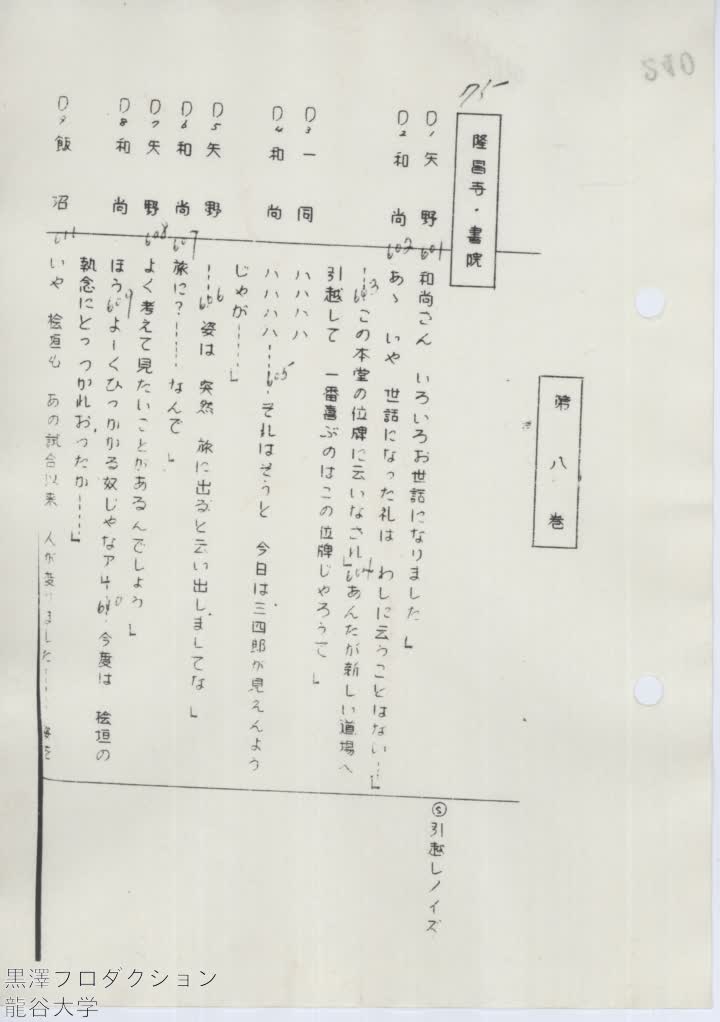 第八巻
隆昌寺・書院
D1 矢野 601 和尚さん いろいろお世話になりました」
D2 和尚 602 あゝ いや 世話になった礼は わしに云うことはない…」
603 この本堂の位牌に云いなされ」604 あんたが新しい道場へ
引越して 一番喜ぶのはこの位牌じゃろうて」
D3 一同 ハハハハ
D4 和尚 ハハハハ……605 それはそうと 今日は三四郎が見えんよう
じゃが……」
D5 矢野 ……606 姿は 突然 旅に出ると云い出しましてな」
D6 和尚 607 旅に?……なんで」
D7 矢野 608 よく考えて見たいことがあるんでしょう」
D8 和尚 ほう 609 よーくひっかかる奴じゃなァ 610 今度は 桧垣の
執念にとっつかれおったか……」
D9 飯沼 611 いや 桧垣も あの試合以来 人が変りました……
Ⓢ引越しノイズ
黒澤プロダクション
龍谷大学